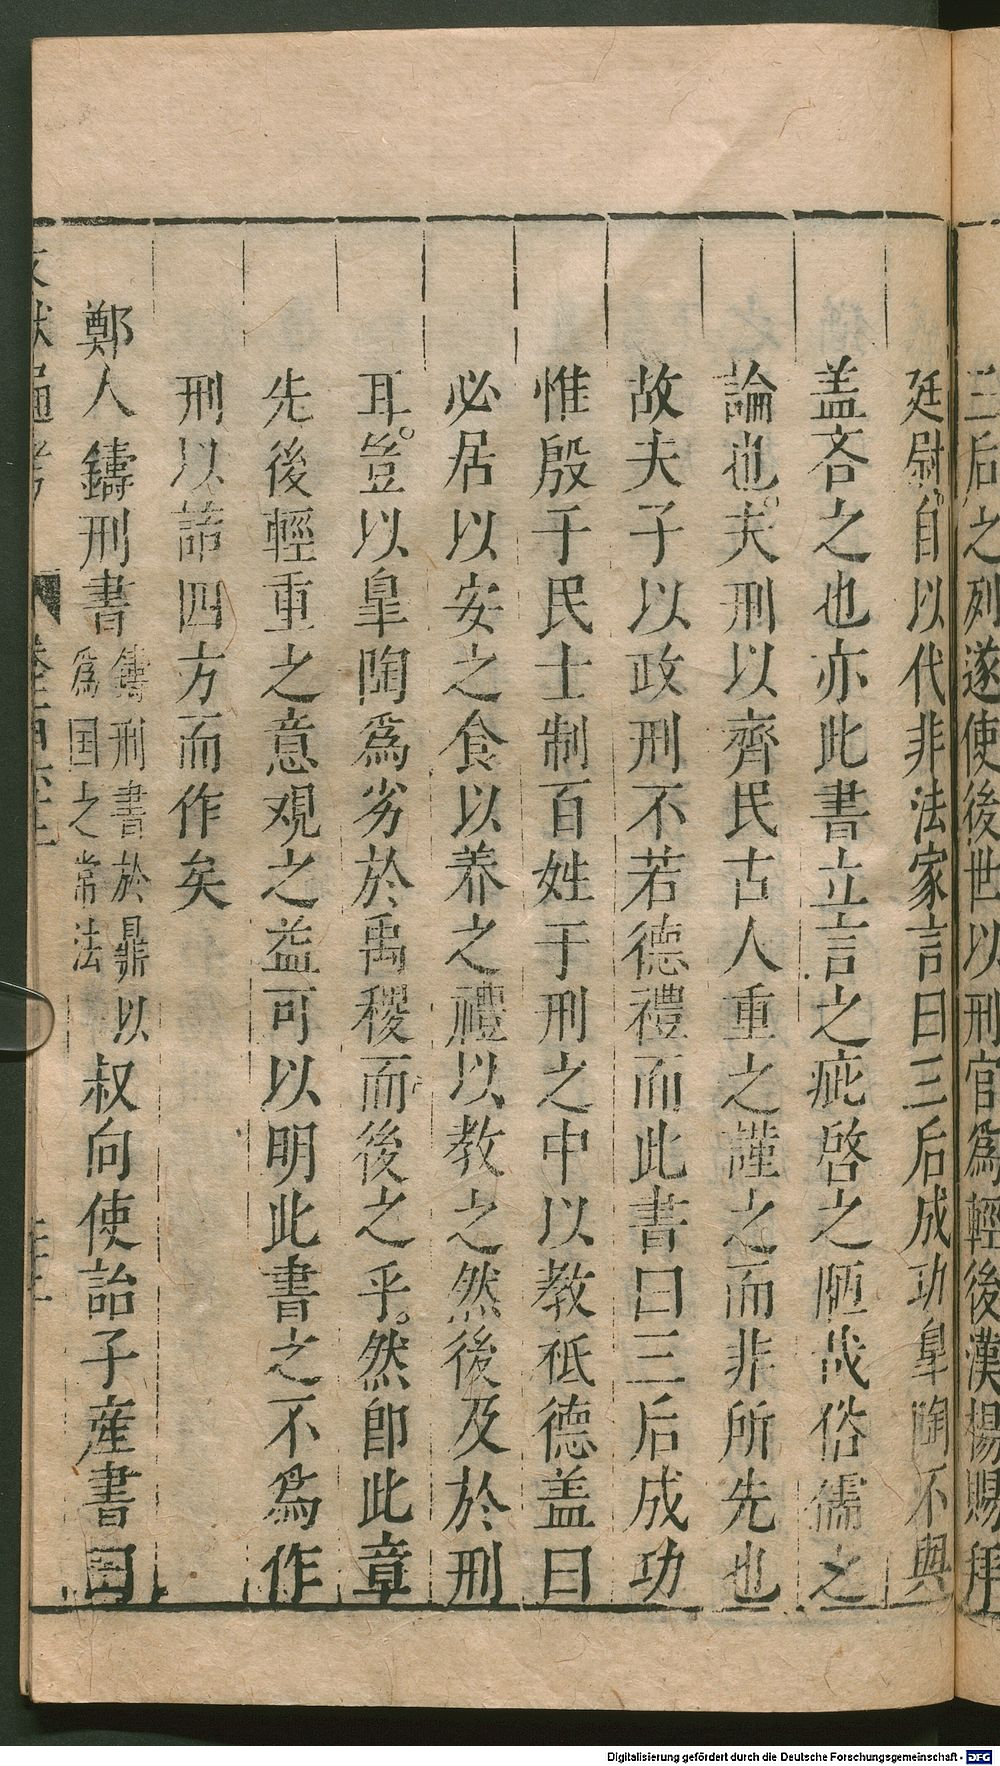 三后之列遂使後世以刑官爲輕後漢楊賜拜
廷尉自以代非法家言曰三后成功皐陶不與
盖吝之也亦此書立言之疵啓之陋哉俗儒之
論也。夫刑以齊民古人重之謹之而非所先也
故夫子以政刑不若德禮而此書曰三后成功
惟殷于民士制百姓于刑之中以教祗德盖曰
必居以安之食以养之禮以教之然後及於刑
耳。豈以皐陶爲劣於禹稷而後之乎。然即此章
先後輕重之意观之益可以明此書之不爲作
刑以誥四方而作矣
鄭人鑄刑書
鑄刑書於鼎以
爲国之常法
叔向使詒子産書曰
文献通考
Digitalisierung gefördert durch die Deutsche Forschungsgemeinschaft - DFG